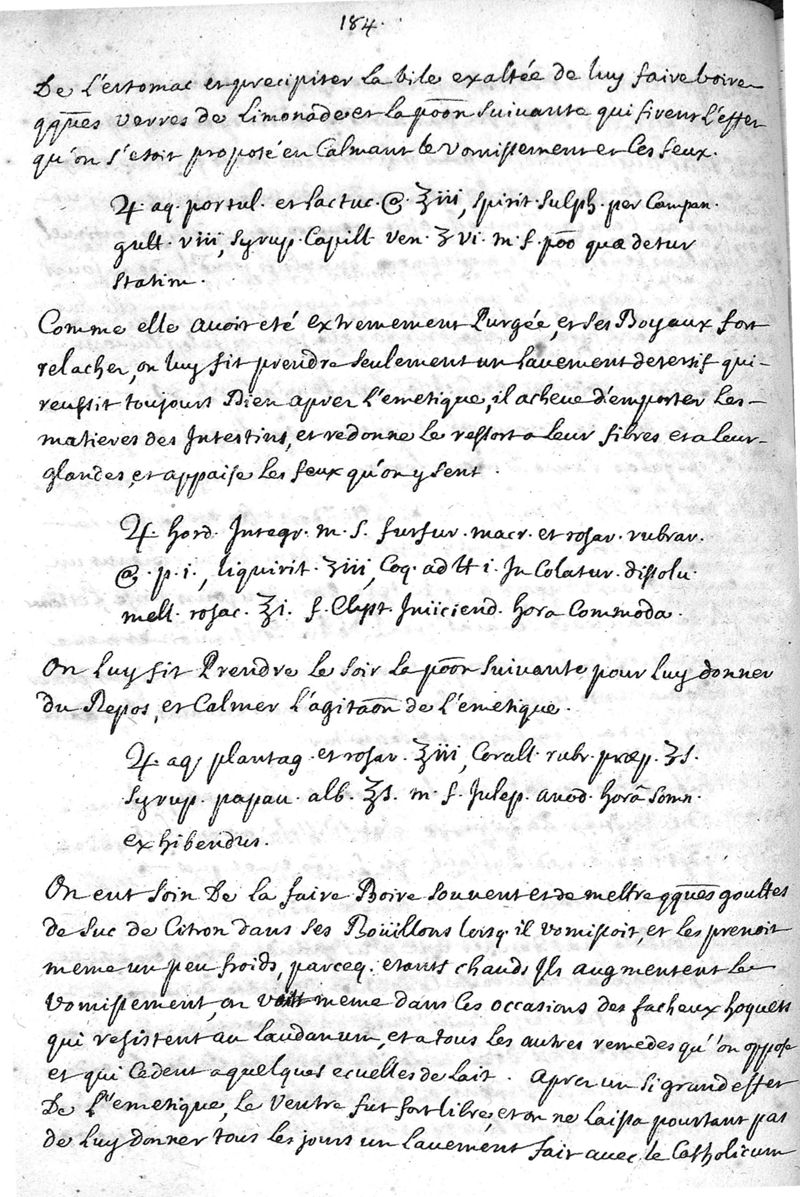 184.
De L'estomac et precipiter la bile exaltée de luy faire boire
qques verres de Limonade et la poōn suivante qui firent L'effet
qu'on s'etoit proposé en Calmant le vomissement et les feux.
♃. aq. portul. et Lactuc. @. ℥iii, spirit. sulph. per Campan.
gutt. viii, syrup. Capill. ven. ℥vi. m. f. poō quæ detur
statim.
Comme elle avoit eté extremement Purgée, et ses Boyaux fort
relachez, on luy fit prendre seulement un Lavement detersif qui
reussit toujours Bien apres L'emetique, il acheve d'emporter Les
matieres des Intestins, et redonne le ressort a leur fibres et a leur
glandes, et appaise les feux qu'on y sent.
♃. hord. Integr. m. s. furfur. macr. et rosar. rubrar.
@. p. i., liquirit. ʒiii, Coq. ad ℔ i. In Colatur. dissolu.
mell. rosac. ℥i. f. Clyst. Iniiciend. hora Commoda.
On Luy fit Prendre Le soir La poōn suivante pour luy donner
du Repos, et Calmer L'agitaōn de L'emetique.
♃. aq. plantag. et rosar. ℥iii, Corall. rubr. præp. ʒs.
syrup. papau. alb. ℥s. m. f. Julep. anod. horâ somn.
exhibendus.
On eut soin De la faire Boire souvent et de mettre qques gouttes
de suc de Citron dans ses Boüillons lorsq. il vomissoit, et les prenoit
meme un peu froids, parceq. etants chauds Ils augmentent le
vomissement, on voit meme dans ces occasions des facheux hoquets
qui resistent au laudanum, et a tous les autres remedes qu'on oppose
et qui Cedent a quelques ecuelles de lait. Apres un si grand effet
De L'emetique, le Ventre fut fort libre, et on ne laissa pourtant pas
de luy donner tous les jours un lavement fait avec le Catholicum